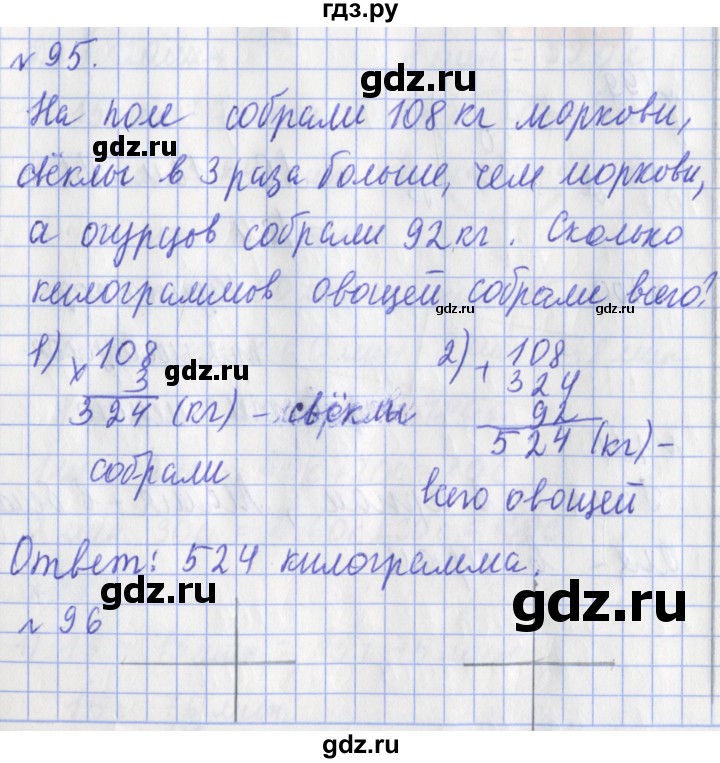 гдз.ру
№ 95.
gdz.ru
На поле собрали 108 кг моркови,
свёклы в 3 раза больше, чем моркови,
gdz.ru
gdz.ru
а огурцов собрали 92 кг. Сколько
килограммов овощей собрали всего?
gdz.ru
gdz.ru
1) × 108
3
324 (кг) - свёклы
собрали
gdz.ru
2) + 108
324
92
524 (кг) -
всего овощей
gdz.ru
Ответ: 524 килограмма.
gdz.ru
gdz.ru
№ 96
gdz.ru